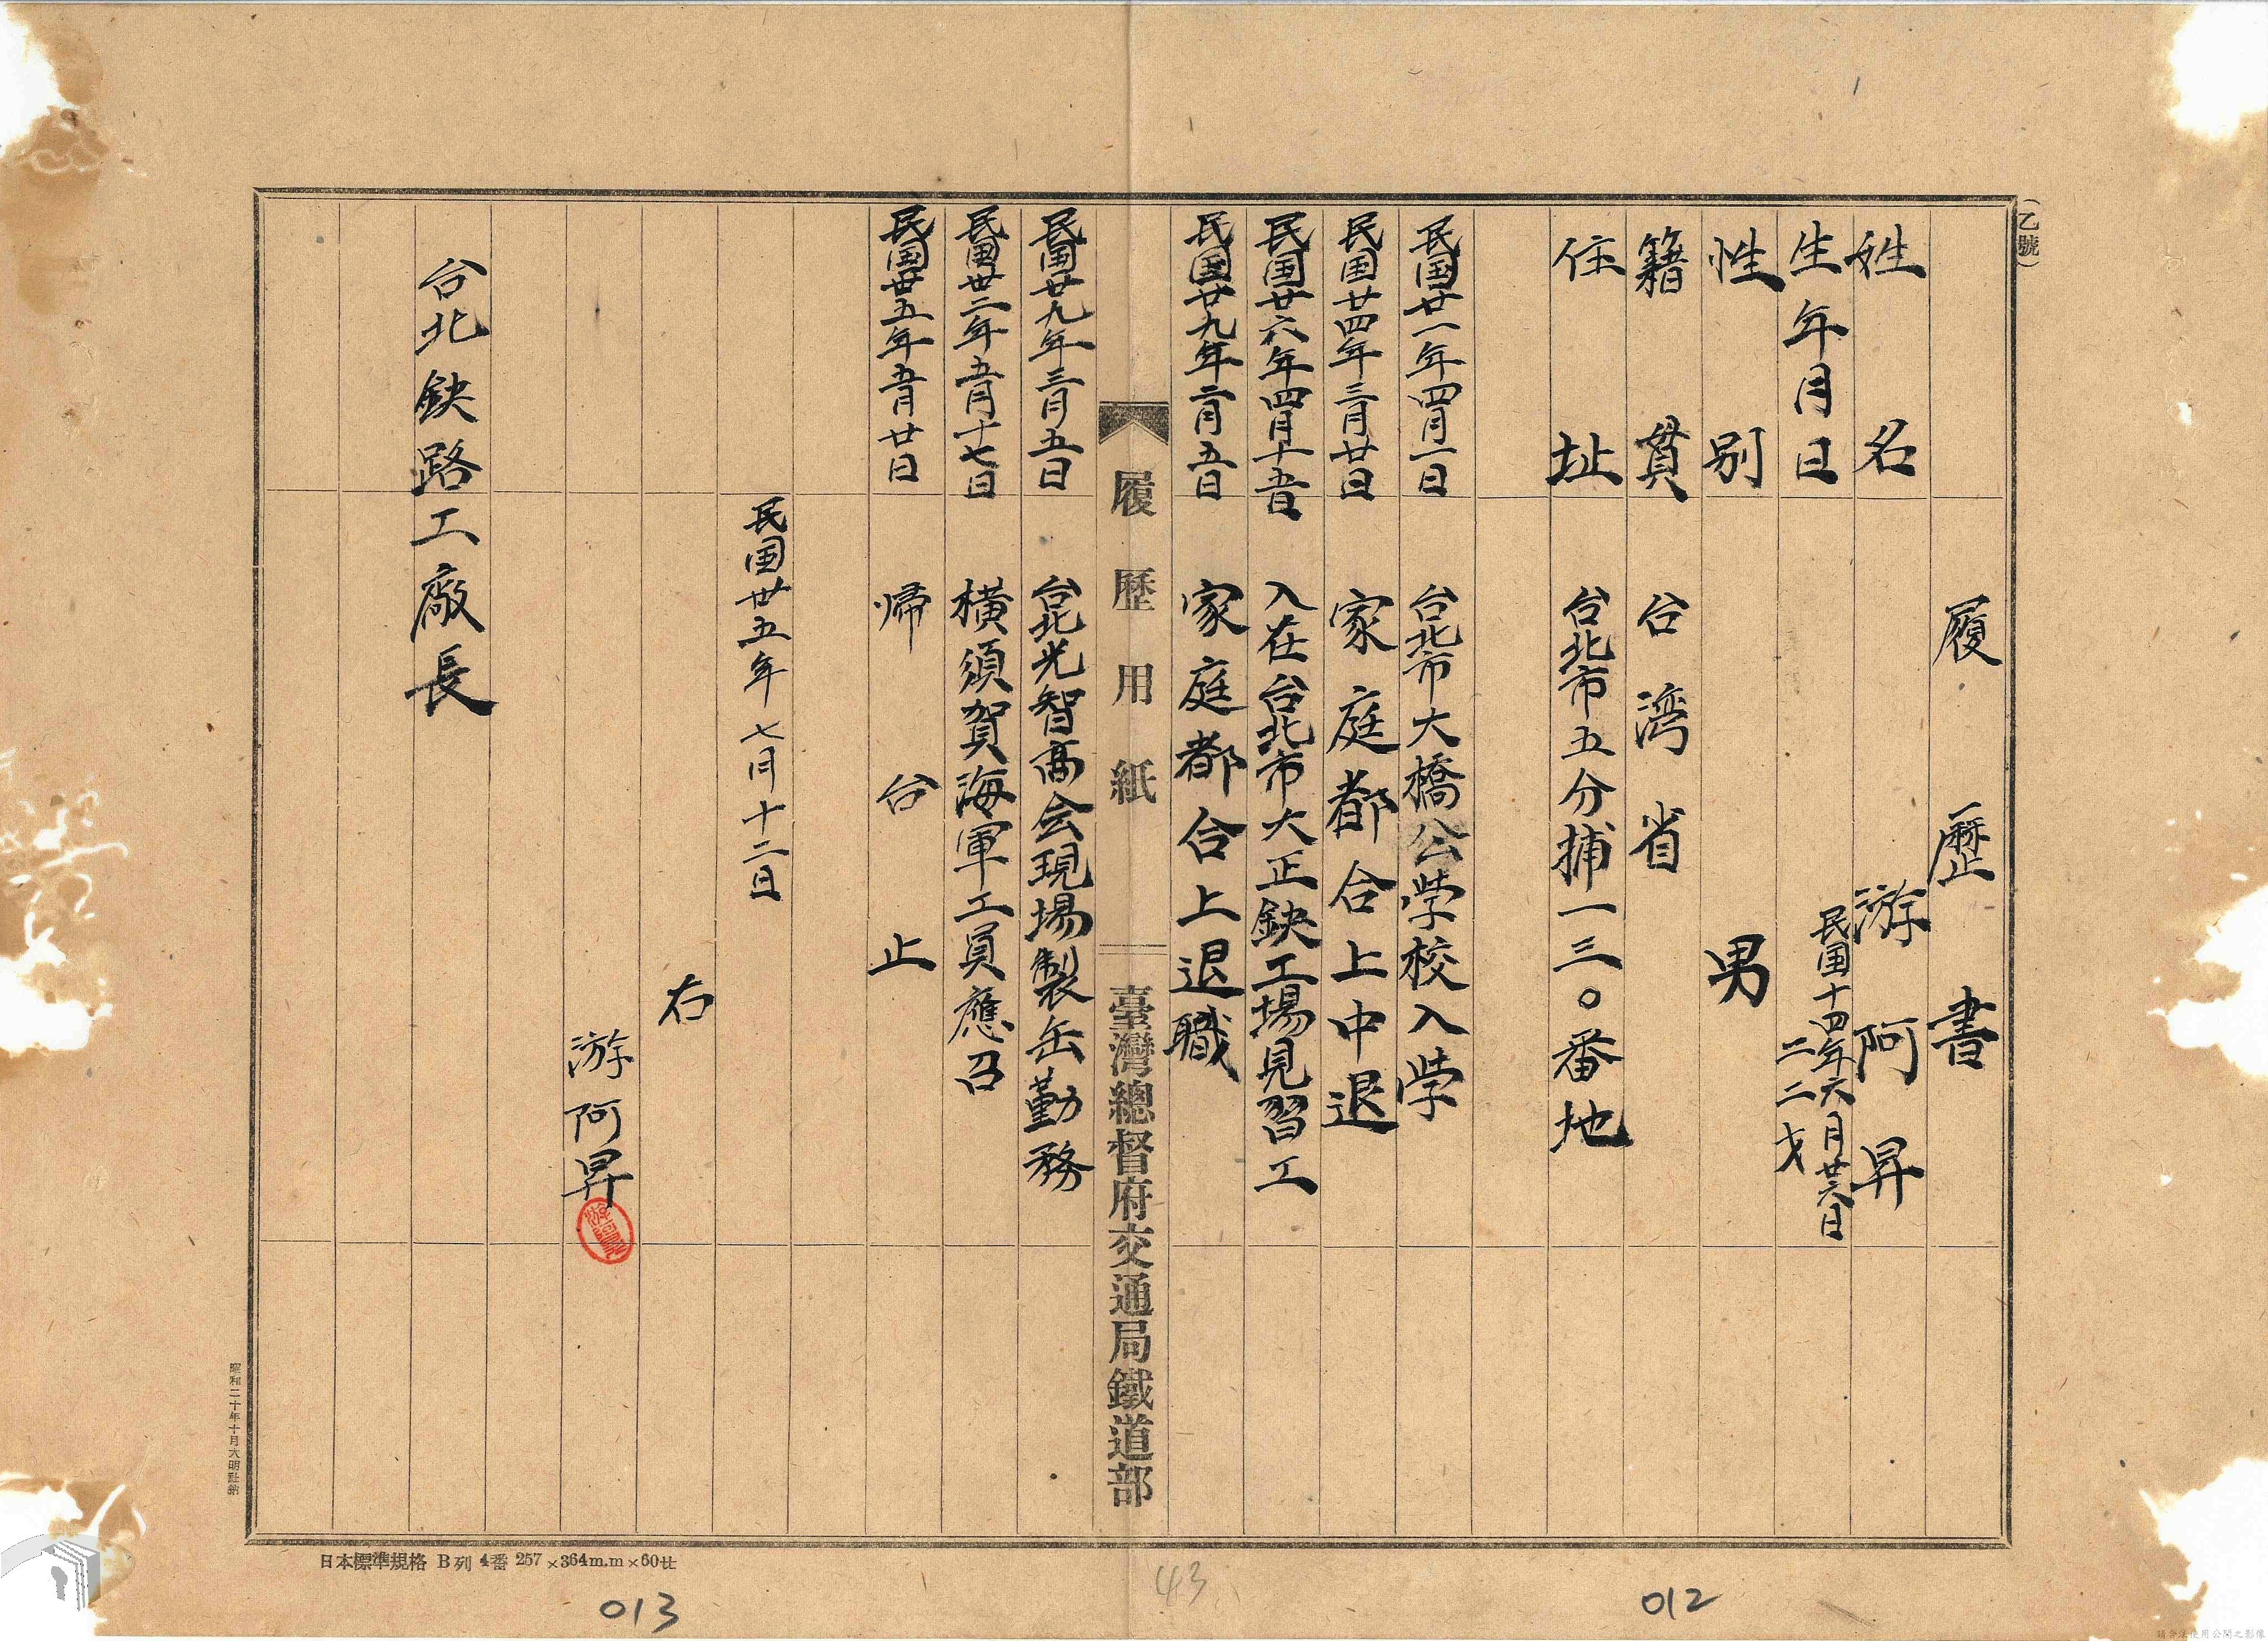 (乙號)
履歷書
姓名 游阿昇
生年月日 民国十四年六月廿六日
二二才
性別 男
籍貫 台湾省
住址 台北市五分捕一三〇番地
民国廿一年四月一日 台北市大橋公学校入学
民国廿四年三月廿日 家庭都合上中退
民国廿六年四月十五日 入在台北市大正鉄工場見習工
民国廿九年二月五日 家庭都合上退職
履歷用紙 臺灣總督府交通局鐵道部
民国廿九年三月五日 台北光智商会現場製缶勤務
民国卅二年五月十七日 横須賀海軍工員應召
民国卅五年五月廿日 帰台止
民国卅五年七月十二日
右
游阿昇
台北鉄路工廠長
昭和二十年十月大明社納
日本標準規格 B列 4番 257×364m.m×60廿
013
43
012